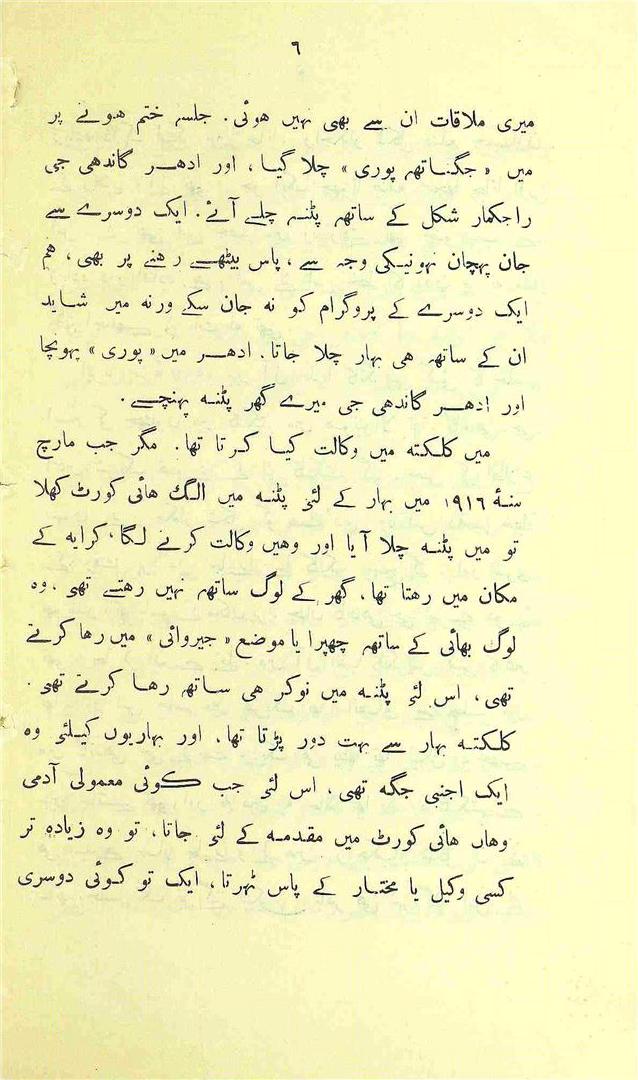 ٦
میری ملاقات ان سے بھی نہیں ہوئی۔ جلسہ ختم ہونے پر
میں «جگناتھہ پوری» چلا گیا، اور ادھر گاندھی جی
راجکمار شکل کے ساتھہ پٹنہ چلے آئے۔ ایک دوسرے سے
جان پہچان نہونیکی وجہ سے، پاس بیٹھے رہنے پر بھی، ہم
ایک دوسرے کے پروگرام کو نہ جان سکے ورنہ میں شاید
ان کے ساتھہ ہی بہار چلا جاتا۔ ادھر میں «پوری» پہونچا
اور ادھر گاندھی جی میرے گھر پٹنہ پہنچے۔
میں کلکتہ میں وکالت کیا کرتا تھا۔ مگر جب مارچ
سنۂ ١٩١٦ میں بہار کے لئی پٹنہ میں الگ ہائی کورٹ کھلا
تو میں پٹنہ چلا آیا اور وہیں وکالت کرنے لگا، کرایہ کے
مکان میں رہتا تھا، گھر کے لوگ ساتھہ نہیں رہتے تھی۔ وہ
لوگ بھائی کے ساتھہ چھپرا یا موضع «جیروائی» میں رہا کرتے
تھی، اس لئی پٹنہ میں نوکر ہی ساتھہ رہا کرتے تھی۔
کلکتہ بہار سے بہت دور پڑتا تھا، اور بہاریوں کیلئی وہ
ایک اجنبی جگہ تھی، اس لئی جب کوئی معمولی آدمی
وہاں ہائی کورٹ میں مقدمہ کے لئی جاتا، تو وہ زیادہ تر
کسی وکیل یا مختار کے پاس ٹہرتا، ایک تو کوئی دوسری